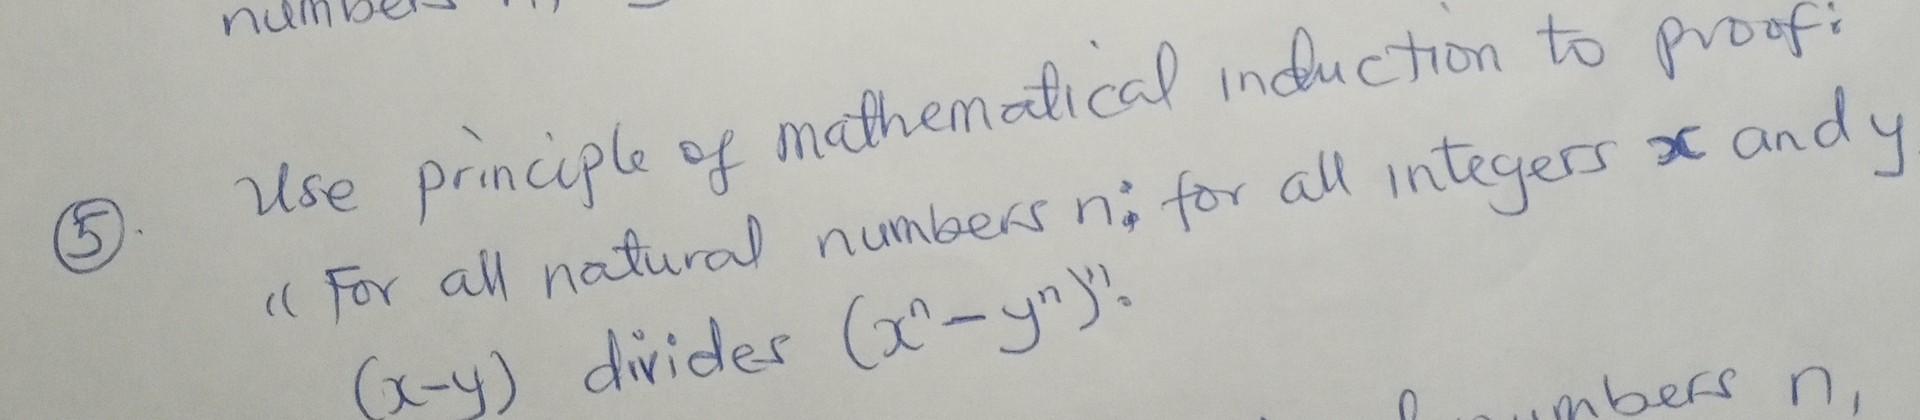 numbers n,
⑤. Use principle of mathematical induction to proof:
"For all natural numbers n; for all integers x and y
(x-y) divides (xⁿ-yⁿ)".
numbers n,